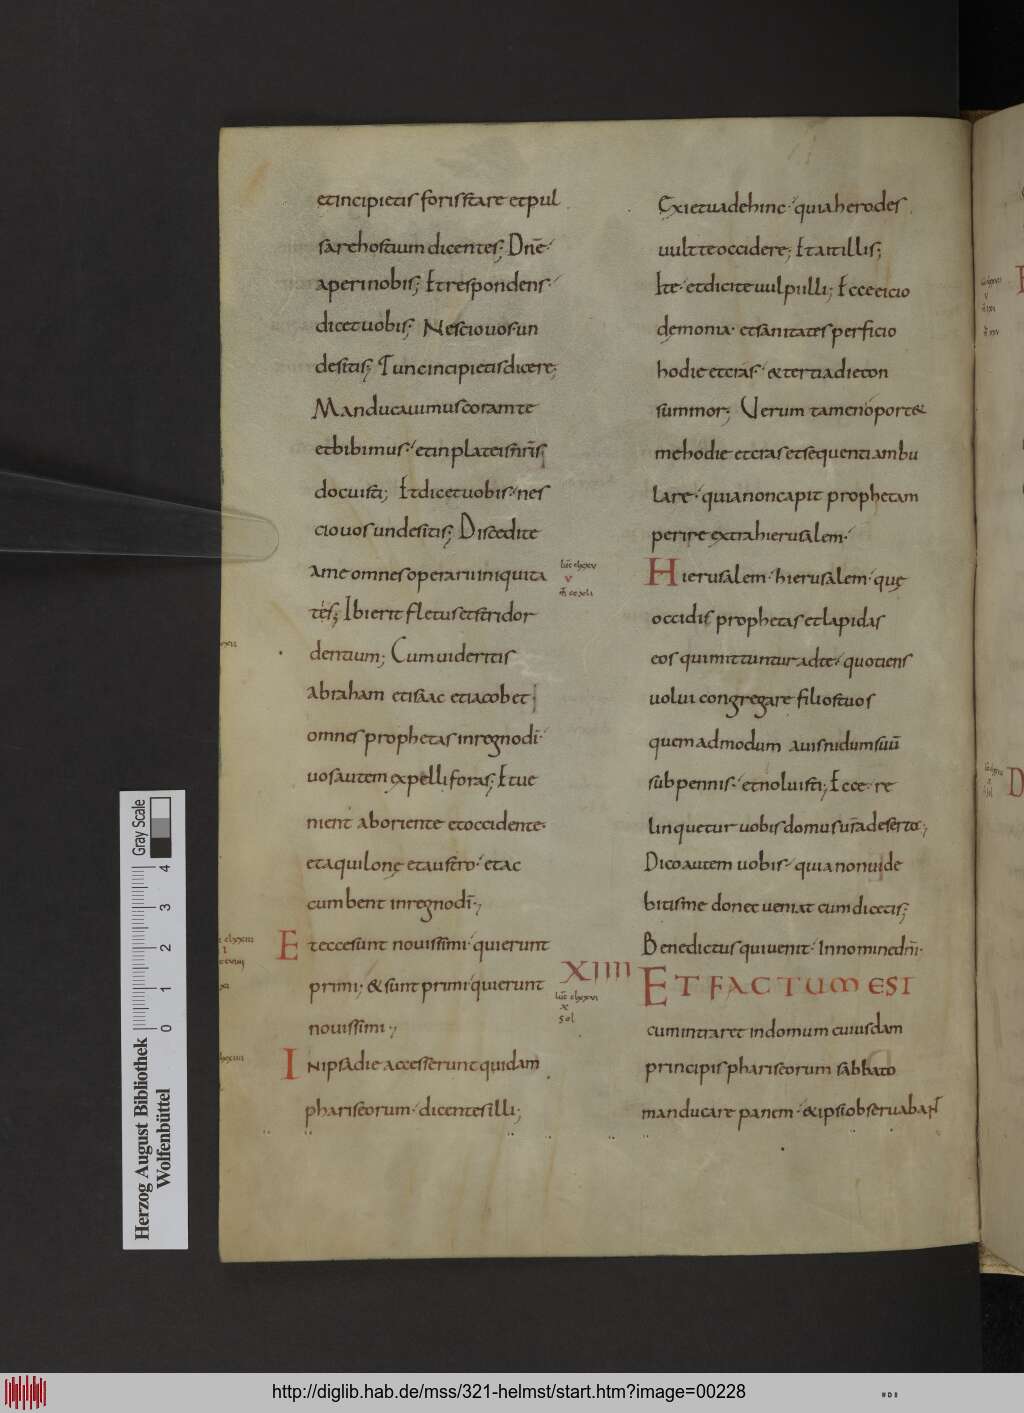 et incipietis foris stare et pul
sare hostium dicentes; Dnē
aperi nobis; Et respondens
dicet uobis; Nescio uos un
desitis; Tunc incipietis dicere;
Manducauimus coram te
et bibimus· et in plateis nr̄is
docuisti; Et dicet uobis· nes
cio uos unde sitis; Discedite
a me omnes operarii iniquita
tes; Ibi erit fletus et stridor
dentium; Cum uideritis
abraham et isaac et iacob et
omnes prophetas in regno dī·
uos autem expelli foras; Et ue
nient ab oriente et occidente·
et aquilone et austro· et ac
cumbent in regno dī·,
Et ecce sunt nouissimi· qui erunt
primi; & sunt primi qui erunt
nouissimi·,
In ipsa die accesserunt quidam
phariseorum· dicentes illi;
Exi et uade hinc· quia herodes
uult te occidere; Et ait illis;
Ite· et dicite uulpi illi; Ecce eicio
demonia· et sanitates perficio
hodie et cras· & tertia die con
summor; Verum tamen oport&
me hodie et cras et sequenti ambu
lare· quia non capit prophetam
perire extra hierusalem·
luc̄ clxxv
v
m̄ ccxli
Hierusalem· hierusalem· quę
occidis prophetas et lapidas
eos qui mittuntur ad te· quotiens
uolui congregare filios tuos
quemadmodum auis nidum suū
sub pennis· et noluisti; Ecce· re
linquetur uobis domus ur̄a deserta·,
Dico autem uobis· quia non uide
bitis me donec ueniat cum dicetis;
Benedictus qui uenit· In nomine dn̄i·
XIIII
luc̄ clxxvi
x
sol
ET FACTUM EST
cum intraret in domum cuiusdam
principis phariseorum sabbato
manducare panem· & ipsi obseruabant
Gray Scale
0 1 2 3 4
Herzog August Bibliothek
Wolfenbüttel
http://diglib.hab.de/mss/321-helmst/start.htm?image=00228